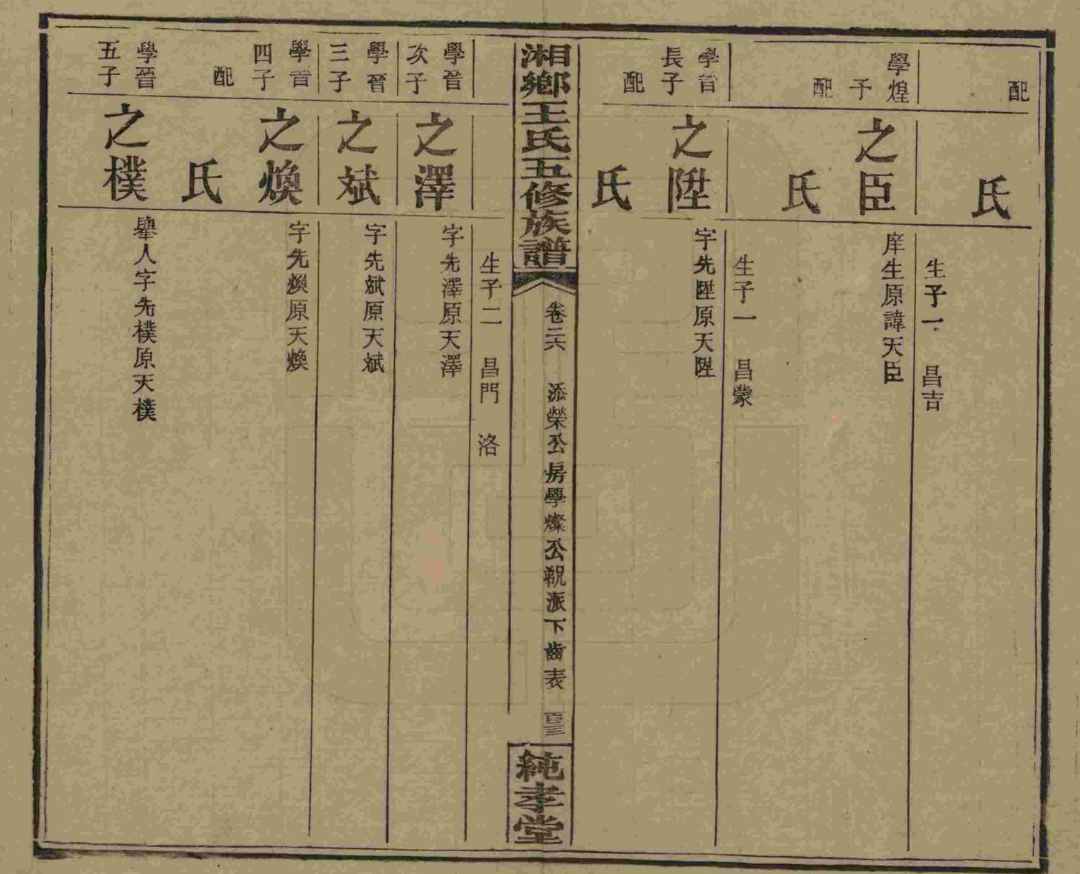 配
氏
生子一 昌吉
學煌
子
之臣
庠生原諱天臣
配
氏
生子一 昌蒙
學晉
長子
之陞
字先陞原天陞
配
氏
湘鄉王氏五修族譜
卷二六
添榮公房學燦公親派下齒表
百三
純孝堂
生子二 昌門 洛
學晉
次子
之澤
字先澤原天澤
學晉
三子
之斌
字先斌原天斌
學晉
四子
之煥
字先煥原天煥
配
氏
學晉
五子
之樸
舉人字先樸原天樸